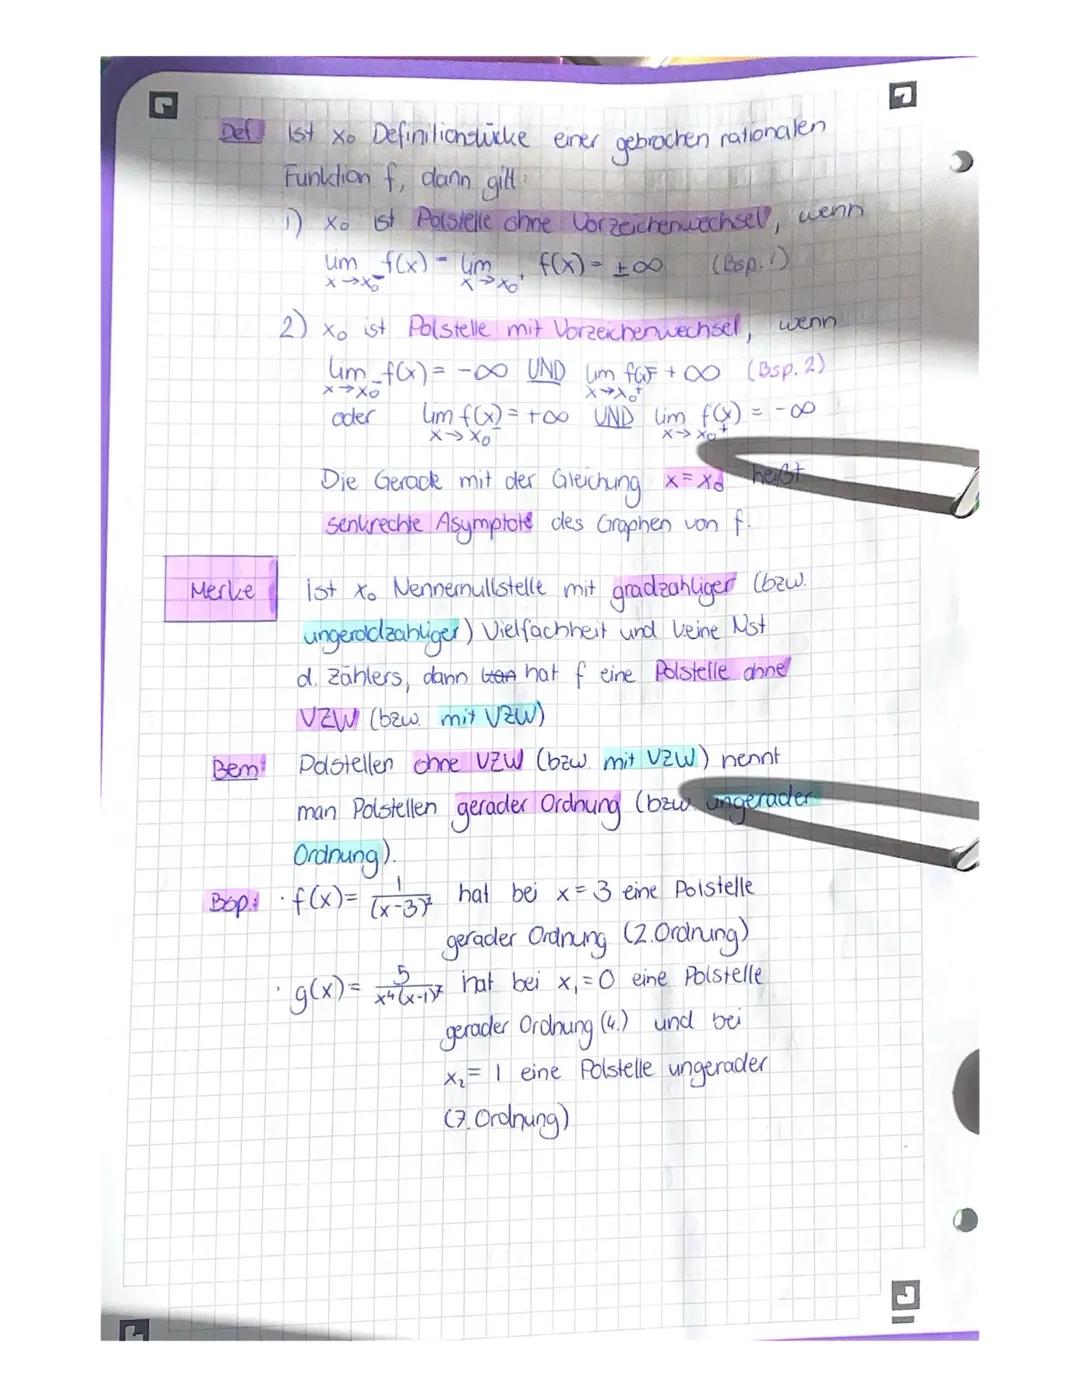 Def Ist x₀ Definitionslücke einer gebrochen rationalen
Funktion f, dann gilt:
1) x₀ ist Polstelle ohne Vorzeichenwechsel, wenn
lim x→x₀⁻ f(x) = lim x→x₀⁺ f(x) = ±∞ (Bsp. 1)
2) x₀ ist Polstelle mit Vorzeichenwechsel, wenn
lim x→x₀⁻ f(x) = -∞ UND lim x→x₀⁺ f(x) = +∞ (Bsp. 2)
oder lim x→x₀⁻ f(x) = +∞ UND lim x→x₀⁺ f(x) = -∞
Die Gerade mit der Gleichung x = x₀ heißt
senkrechte Asymptote des Graphen von f.
Merke Ist x₀ Nennernullstelle mit gradzahliger (bzw.
ungeradzahliger) Vielfachheit und keine Nst
d. Zählers, dann hat f eine Polstelle ohne
VZW (bzw. mit VZW)
Bem: Polstellen ohne VZW (bzw. mit VZW) nennt
man Polstellen gerader Ordnung (bzw. ungerader
Ordnung).
Bsp.: · f(x) = 1/(x-3)² hat bei x = 3 eine Polstelle
gerader Ordnung (2. Ordnung)
· g(x) = 5/x⁴(x-1)⁷ hat bei x₁ = 0 eine Polstelle
gerader Ordnung (4.) und bei
x₂ = 1 eine Polstelle ungerader
(7. Ordnung)